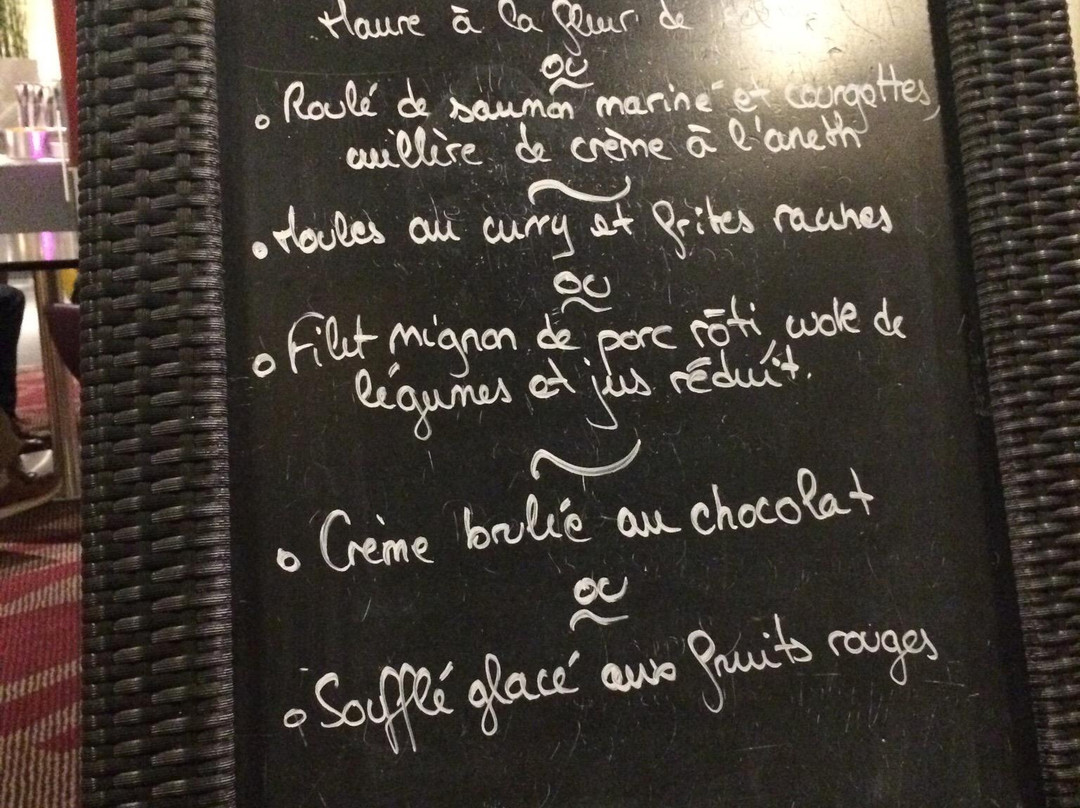 à la fleur de
ou
Roulé de saumon mariné et courgettes,
cuillère de crème à l'aneth
Moules au curry et frites racines
ou
Filet mignon de porc rôti, wok de
légumes et jus réduit.
Crème brulée au chocolat
ou
Soufflé glacé aux fruits rouges